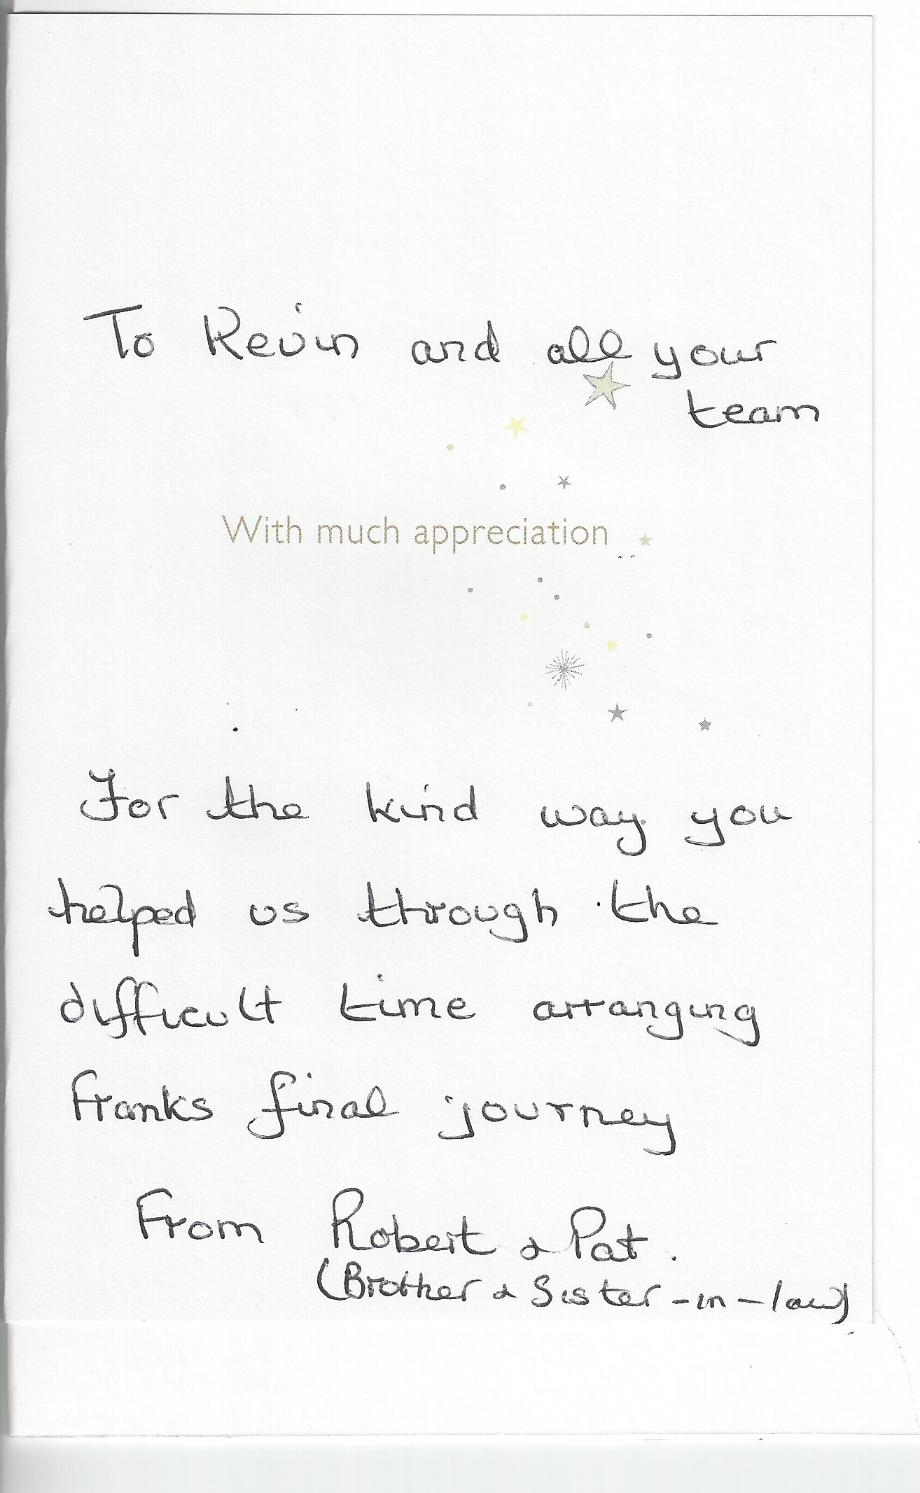 To Kevin and all your
team
With much appreciation
For the kind way you
helped us through the
difficult time arranging
Franks final journey
From Robert & Pat.
(Brother & Sister-in-law)